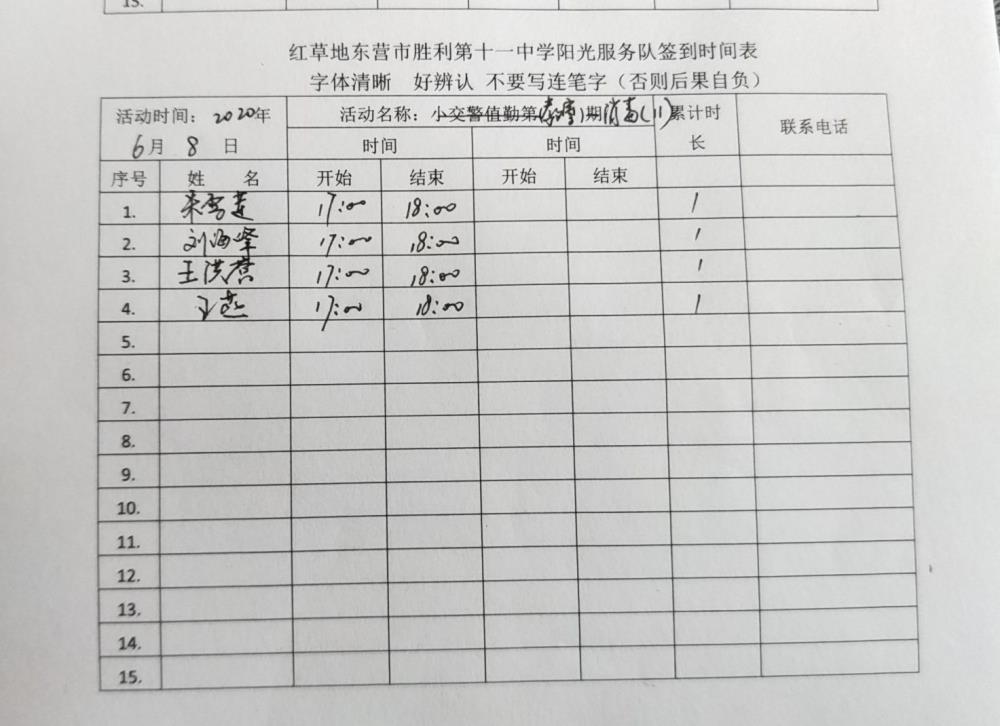 15.
红草地东营市胜利第十一中学阳光服务队签到时间表
字体清晰 好辨认 不要写连笔字（否则后果自负）
活动时间：2020年 活动名称：小交警值勤第 期消毒(11) 累计时长 联系电话
6月 8 日 时间 时间
序号 姓 名 开始 结束 开始 结束
1. 17:00 18:00 1
2. 刘海峰 17:00 18:00 1
3. 王洪营 17:00 18:00 1
4. 王燕 17:00 18:00 1
5.
6.
7.
8.
9.
10.
11.
12.
13.
14.
15.